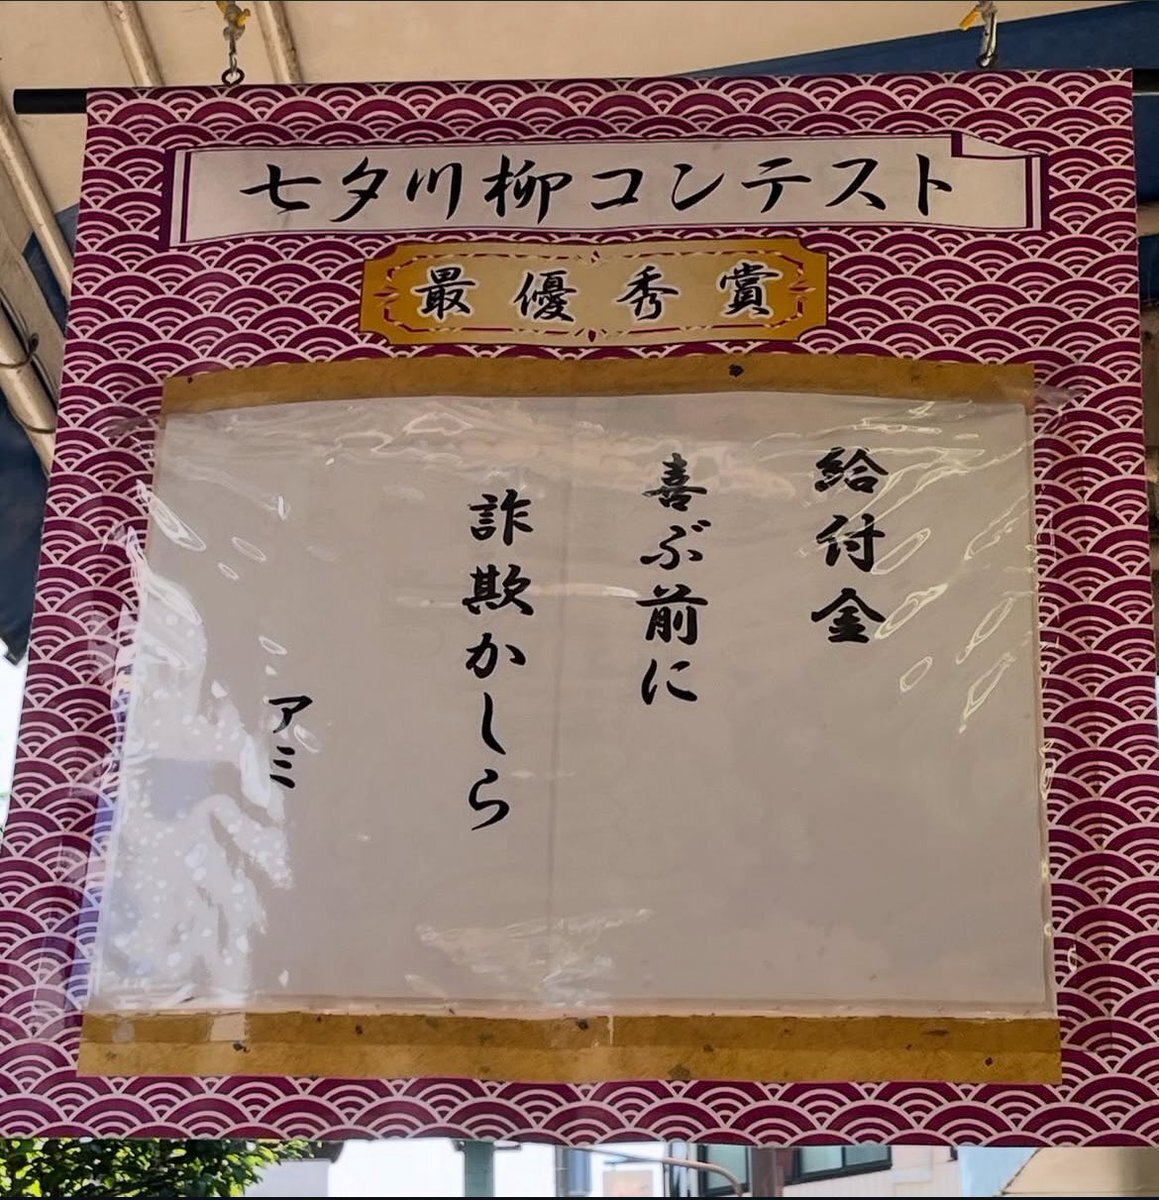 七夕川柳コンテスト
最優秀賞
給付金
喜ぶ前に
詐欺かしら
アミ